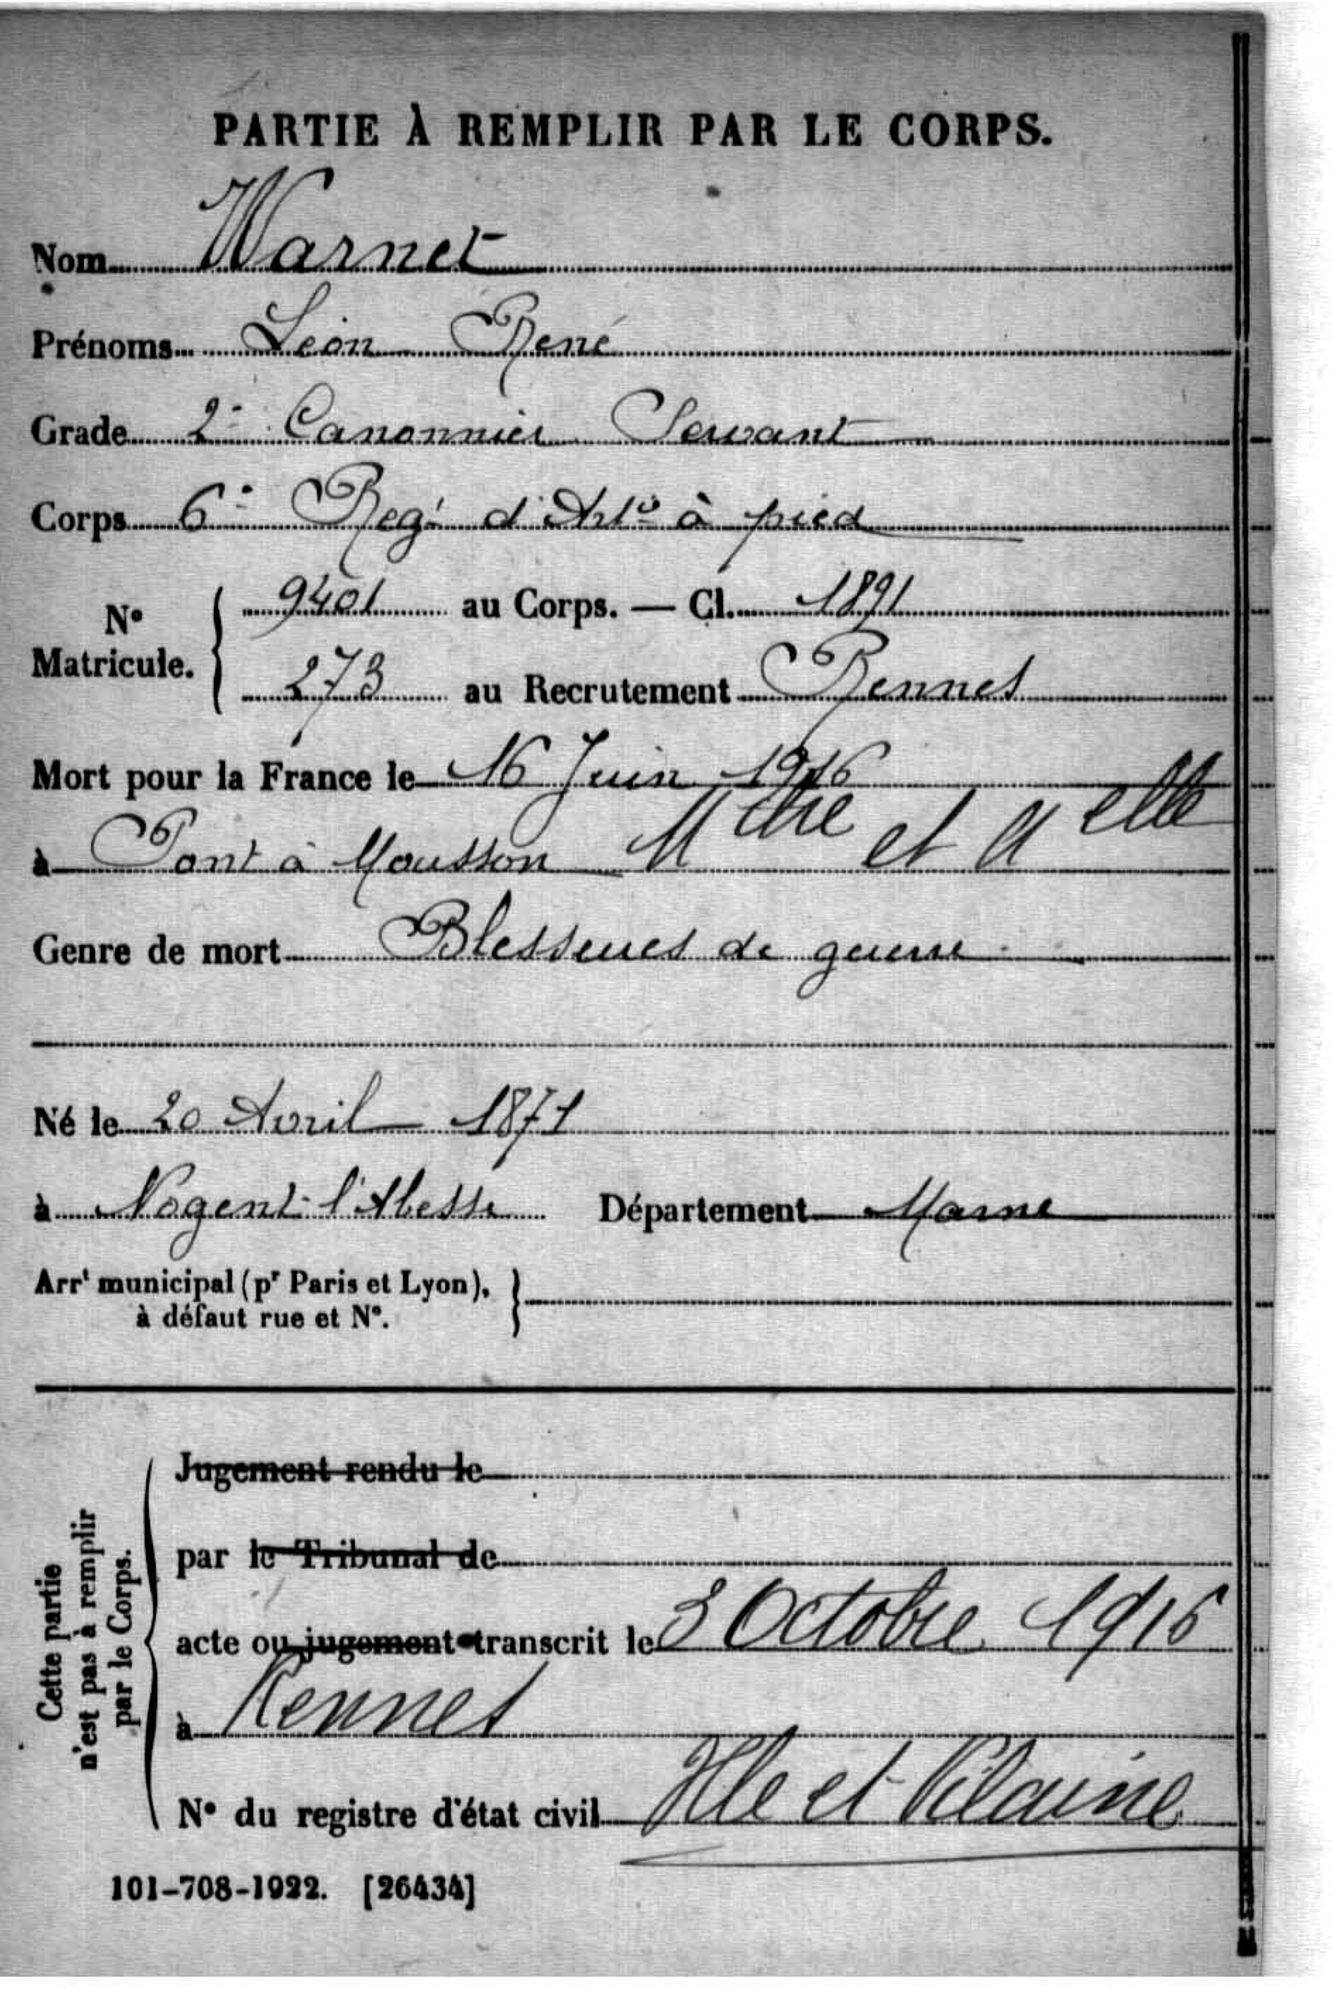 PARTIE À REMPLIR PAR LE CORPS.
Nom Warnet
Prénoms Léon René
Grade 2e Canonnier Servant
Corps 6e Regt d'Artie à pied
No Matricule. { 9401 au Corps. — Cl. 1891
273 au Recrutement Rennes
Mort pour la France le 16 Juin 1916
à Pont à Mousson Mthe et Melle
Genre de mort Blessures de guerre
Né le 20 Avril 1871
à Nogent l'Abesse Département Marne
Arrt municipal (pr Paris et Lyon), }
à défaut rue et No.
Cette partie
n'est pas à remplir
par le Corps.
Jugement rendu le
par le Tribunal de
acte ou jugement transcrit le 3 Octobre 1916
à Rennes
No du registre d'état civil Ille et Vilaine
101-708-1922. [26434]